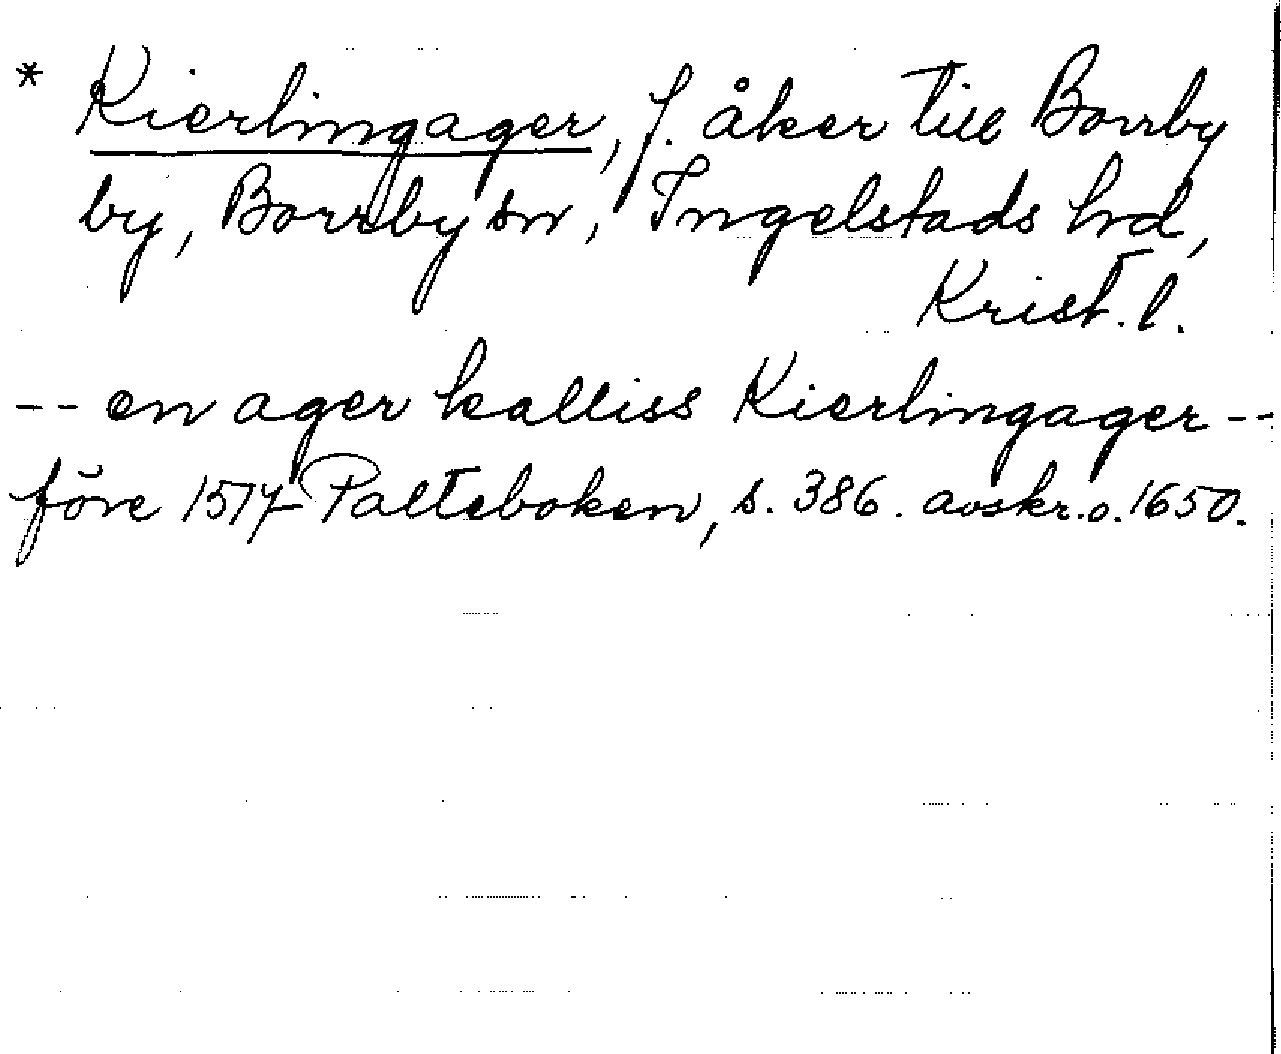 * Kierlingager, f. åker till Borrby
by, Borrby sn, Ingelstads hd,
Krist. l.
-- en ager kalliss Kierlingager --
före 1517 Palteboken, s. 386. avskr. o. 1650.